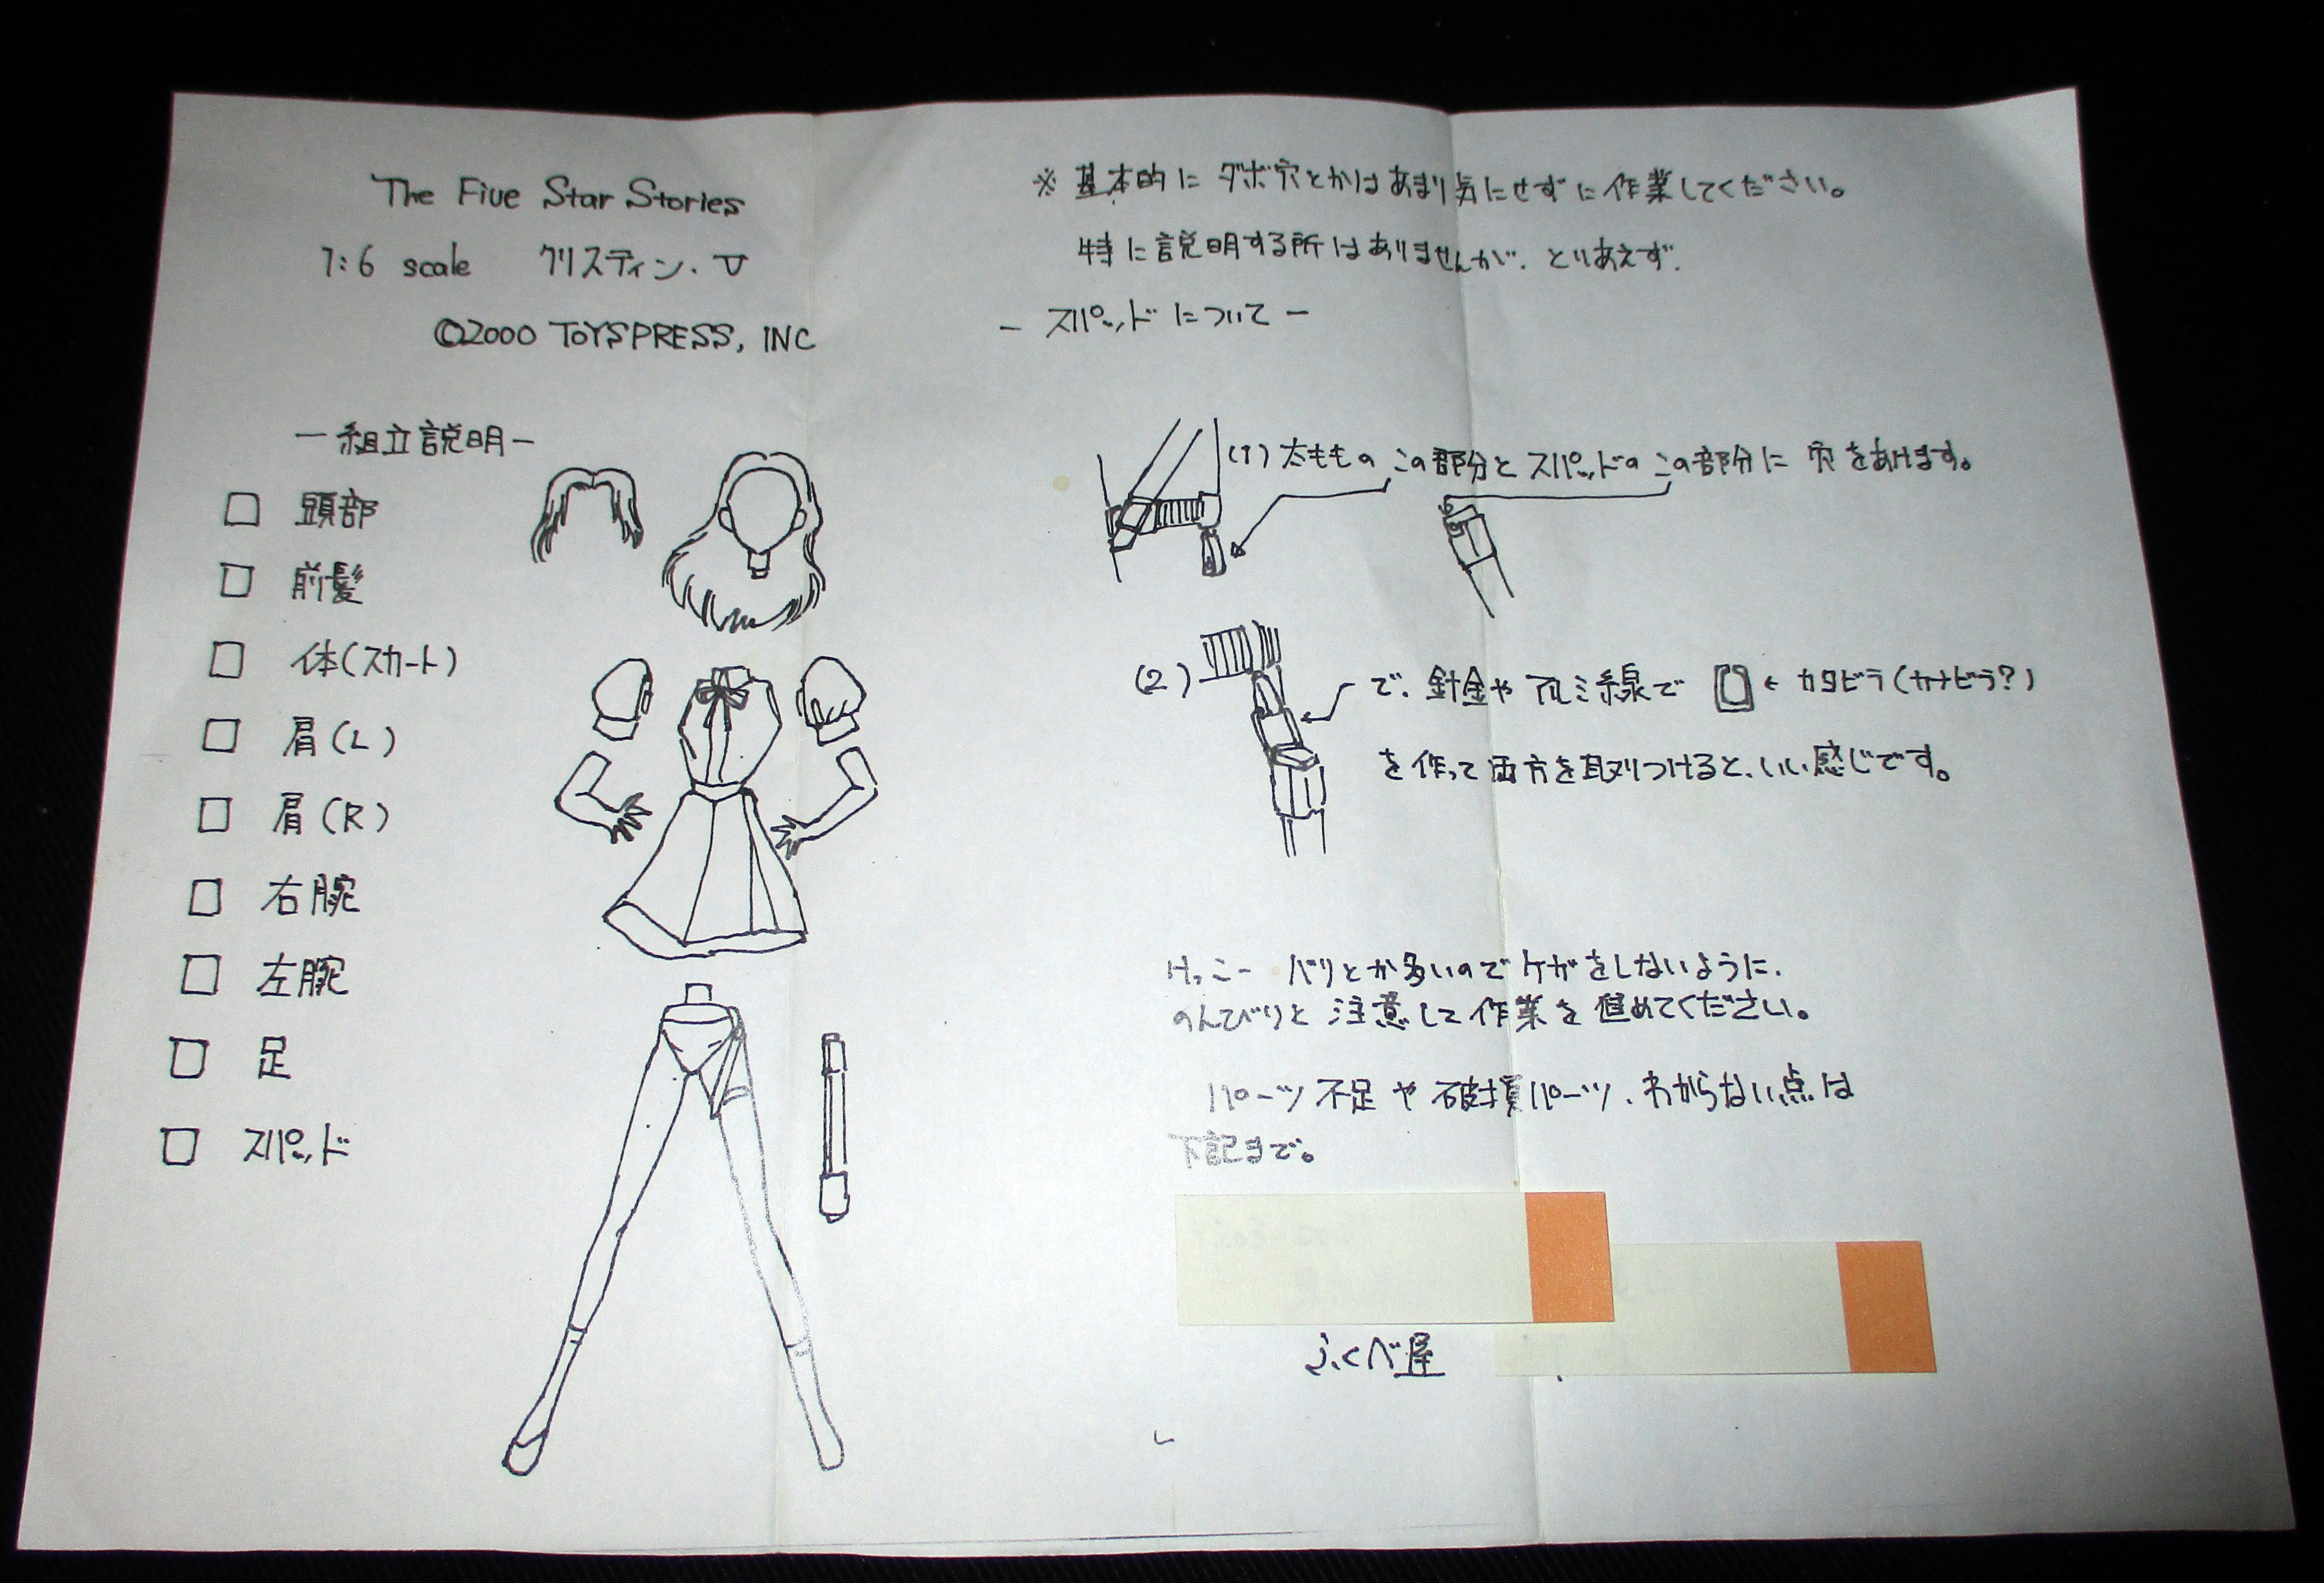 The Five Star Stories
1:6 scale クリスティン・V
©2000 TOYSPRESS, INC
ー組立説明ー
□ 頭部
□ 前髪
□ 体(スカート)
□ 肩(L)
□ 肩(R)
□ 右腕
□ 左腕
□ 足
□ スパッド
※ 基本的に ダボ穴とかはあまり気にせずに作業してください。
特に説明する所はありませんが、とりあえず、
ー スパッドについて ー
(1) 太ももの この部分と スパッドの この部分に 穴をあけます。
(2) で、針金や アルミ線で ← カタビラ(カナビラ?)
を作って 両方を取りつけると、いい感じです。
けっこー バリとか多いので ケガをしないように、
のんびりと 注意して 作業を 進めてください。
パーツ不足や破損パーツ、わからない点は
下記まで。
ふくべ屋